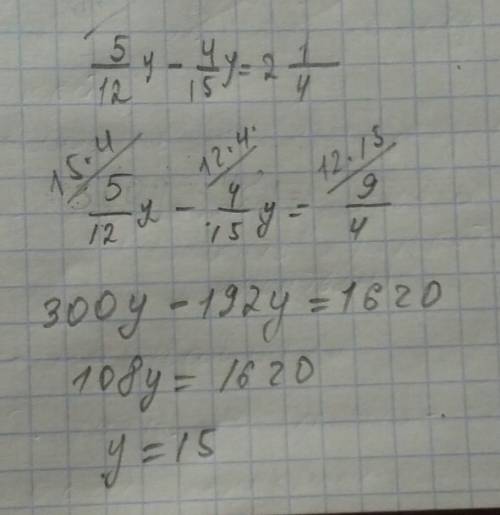 5/12 y - 4/15 y = 2 1/4
15·4/ 12·4/ 12·15/
5/12 y - 4/15 y = 9/4
300y - 192y = 1620
108y = 1620
y = 15